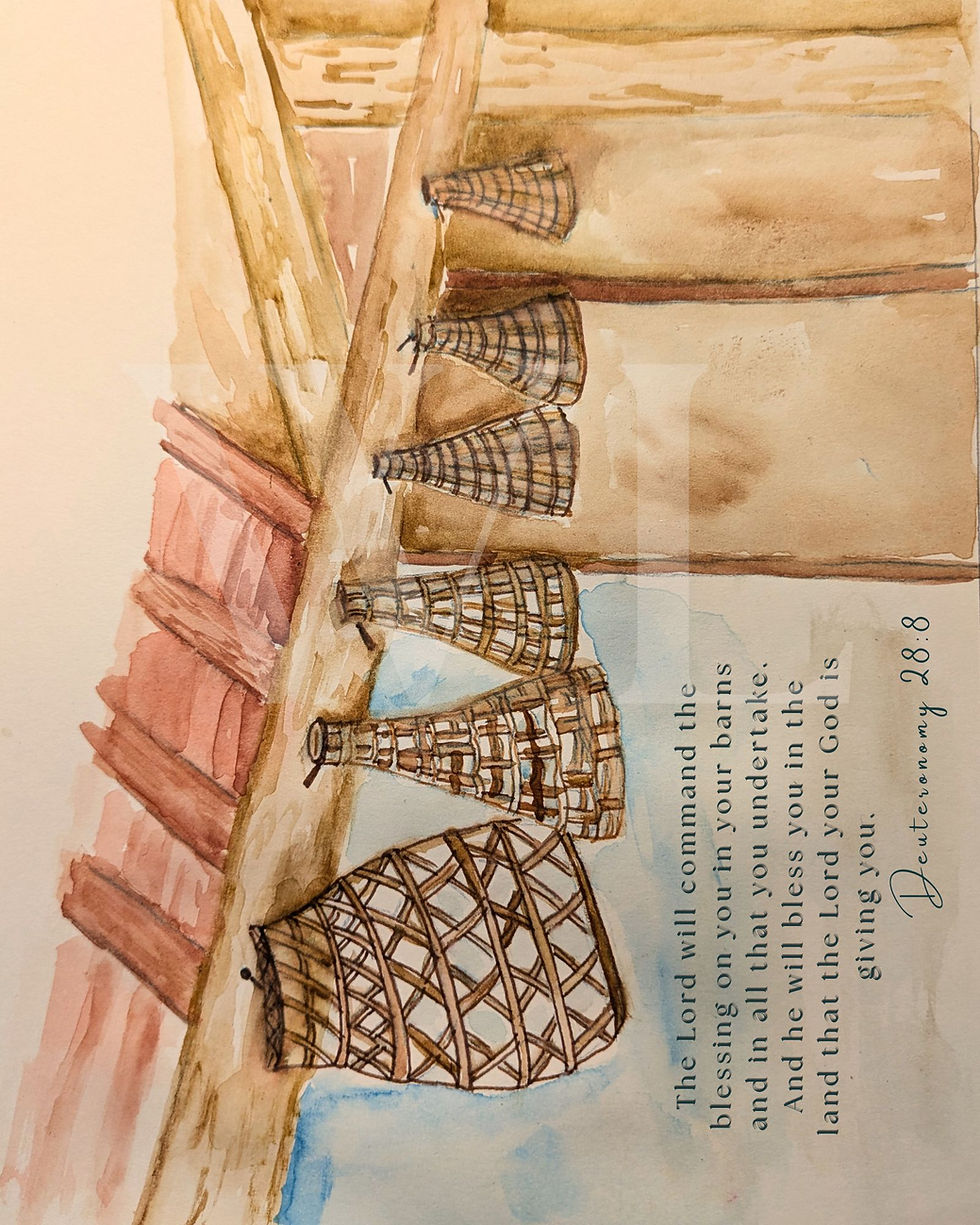 The Lord will command the
blessing on you in your barns
and in all that you undertake.
And he will bless you in the
land that the Lord your God is
giving you.
Deuteronomy 28:8